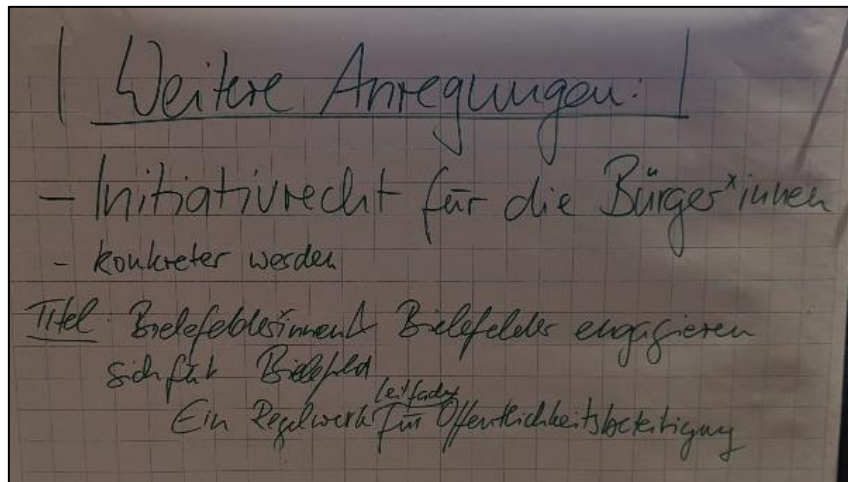 Weitere Anregungen:
- Initiativrecht für die Bürger*innen
- konkreter werden
Titel: Bielefelder*innen & Bielefelder engagieren
sich für Bielefeld
Leitfaden
Ein Regelwerk für Öffentlichkeitsbeteiligung